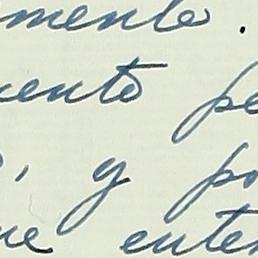 mente.
uento pe
, y po
ue enter